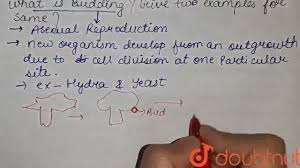 What is Budding? Give two examples for
same?
→ Asexual Reproduction
→ New organism develop from an outgrowth
due to cell division at one particular
site.
→ ex- Hydra & Yeast
Bud
doubtnut